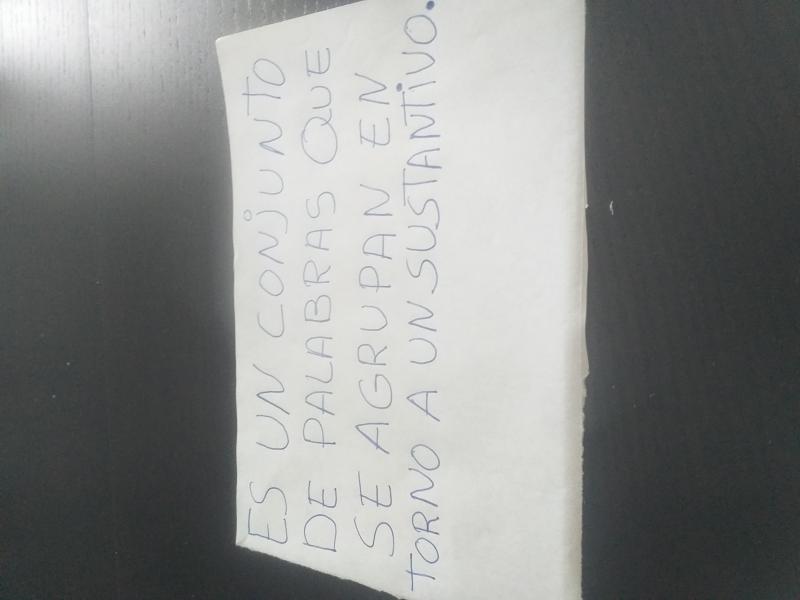 ES UN CONJUNTO
DE PALABRAS QUE
SE AGRUPAN EN
TORNO A UN SUSTANTIVO.